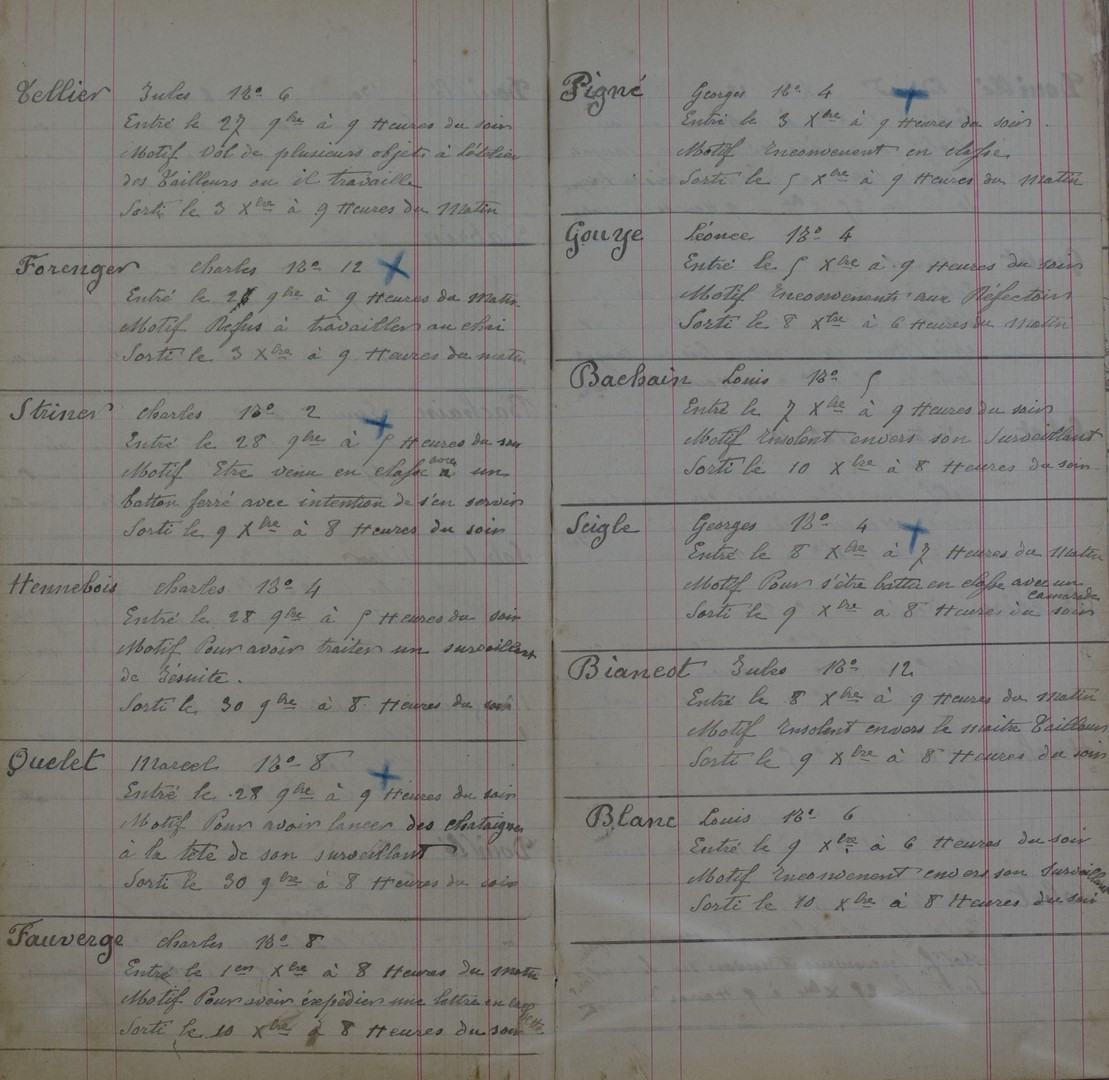 Tellier Jules Bon 6
Entré le 27 9bre à 9 Heures du soir
Motif Vol de plusieurs objets à l'atelier
des Tailleurs ou il travaille
Sorti le 3 Xbre à 9 Heures du Matin
Forenger Charles Bon 12
Entré le 28 9bre à 9 Heures du Matin
Motif Réfus à travailler au chai
Sorti le 3 Xbre à 9 Heures du matin
Striner Charles Bon 2
Entré le 28 9bre à 5 Heures du soir
Motif Etre venu en classe avec un
batton ferré avec intention de s'en servir
Sorti le 9 Xbre à 8 Heures du soir
Hennebois Charles Bon 4
Entré le 28 9bre à 5 Heures du soir
Motif Pour avoir traiter un surveillant
de Jésuite.
Sorti le 30 9bre à 8 Heures du soir
Quelet Marcel Bon 8
Entré le 28 9bre à 9 Heures du soir
Motif Pour avoir lancer des chataignes
à la tête de son surveillant
Sorti le 30 9bre à 8 Heures du soir
Fauverge Charles Bon 8
Entré le 1er Xbre à 8 Heures du matin
Motif Pour avoir éxpédier une lettre en cachette
Sorti le 10 Xbre à 8 Heures du soir
Pigné Georges Bon 4
Entré le 3 Xbre à 9 Heures du soir.
Motif Enconvenent en classe
Sorti le 5 Xbre à 9 Heures du Matin
Gouye Léonce Bon 4
Entré le 5 Xbre à 9 Heures du soir
Motif Enconvenents aux Réfectoir
Sorti le 8 Xbre à 6 Heures du Matin
Bachain Louis Bon 5
Entré le 7 Xbre à 9 Heures du soir
Motif Ensolent envers son Surveillant
Sorti le 10 Xbre à 8 Heures du soir
Seigle Georges Bon 4
Entré le 8 Xbre à 7 Heures du Matin
Motif Pour s'être battu en classe avec un camarade
Sorti le 9 Xbre à 8 Heures du soir
Biancot Jules Bon 12
Entré le 8 Xbre à 9 Heures du Matin
Motif Ensolent envers le maitre Tailleur
Sorti le 9 Xbre à 8 Heures du soir
Blanc Louis Bon 6
Entré le 9 Xbre à 6 Heures du soir
Motif Enconvenent envers son Surveillant
Sorti le 10 Xbre à 8 Heures du soir